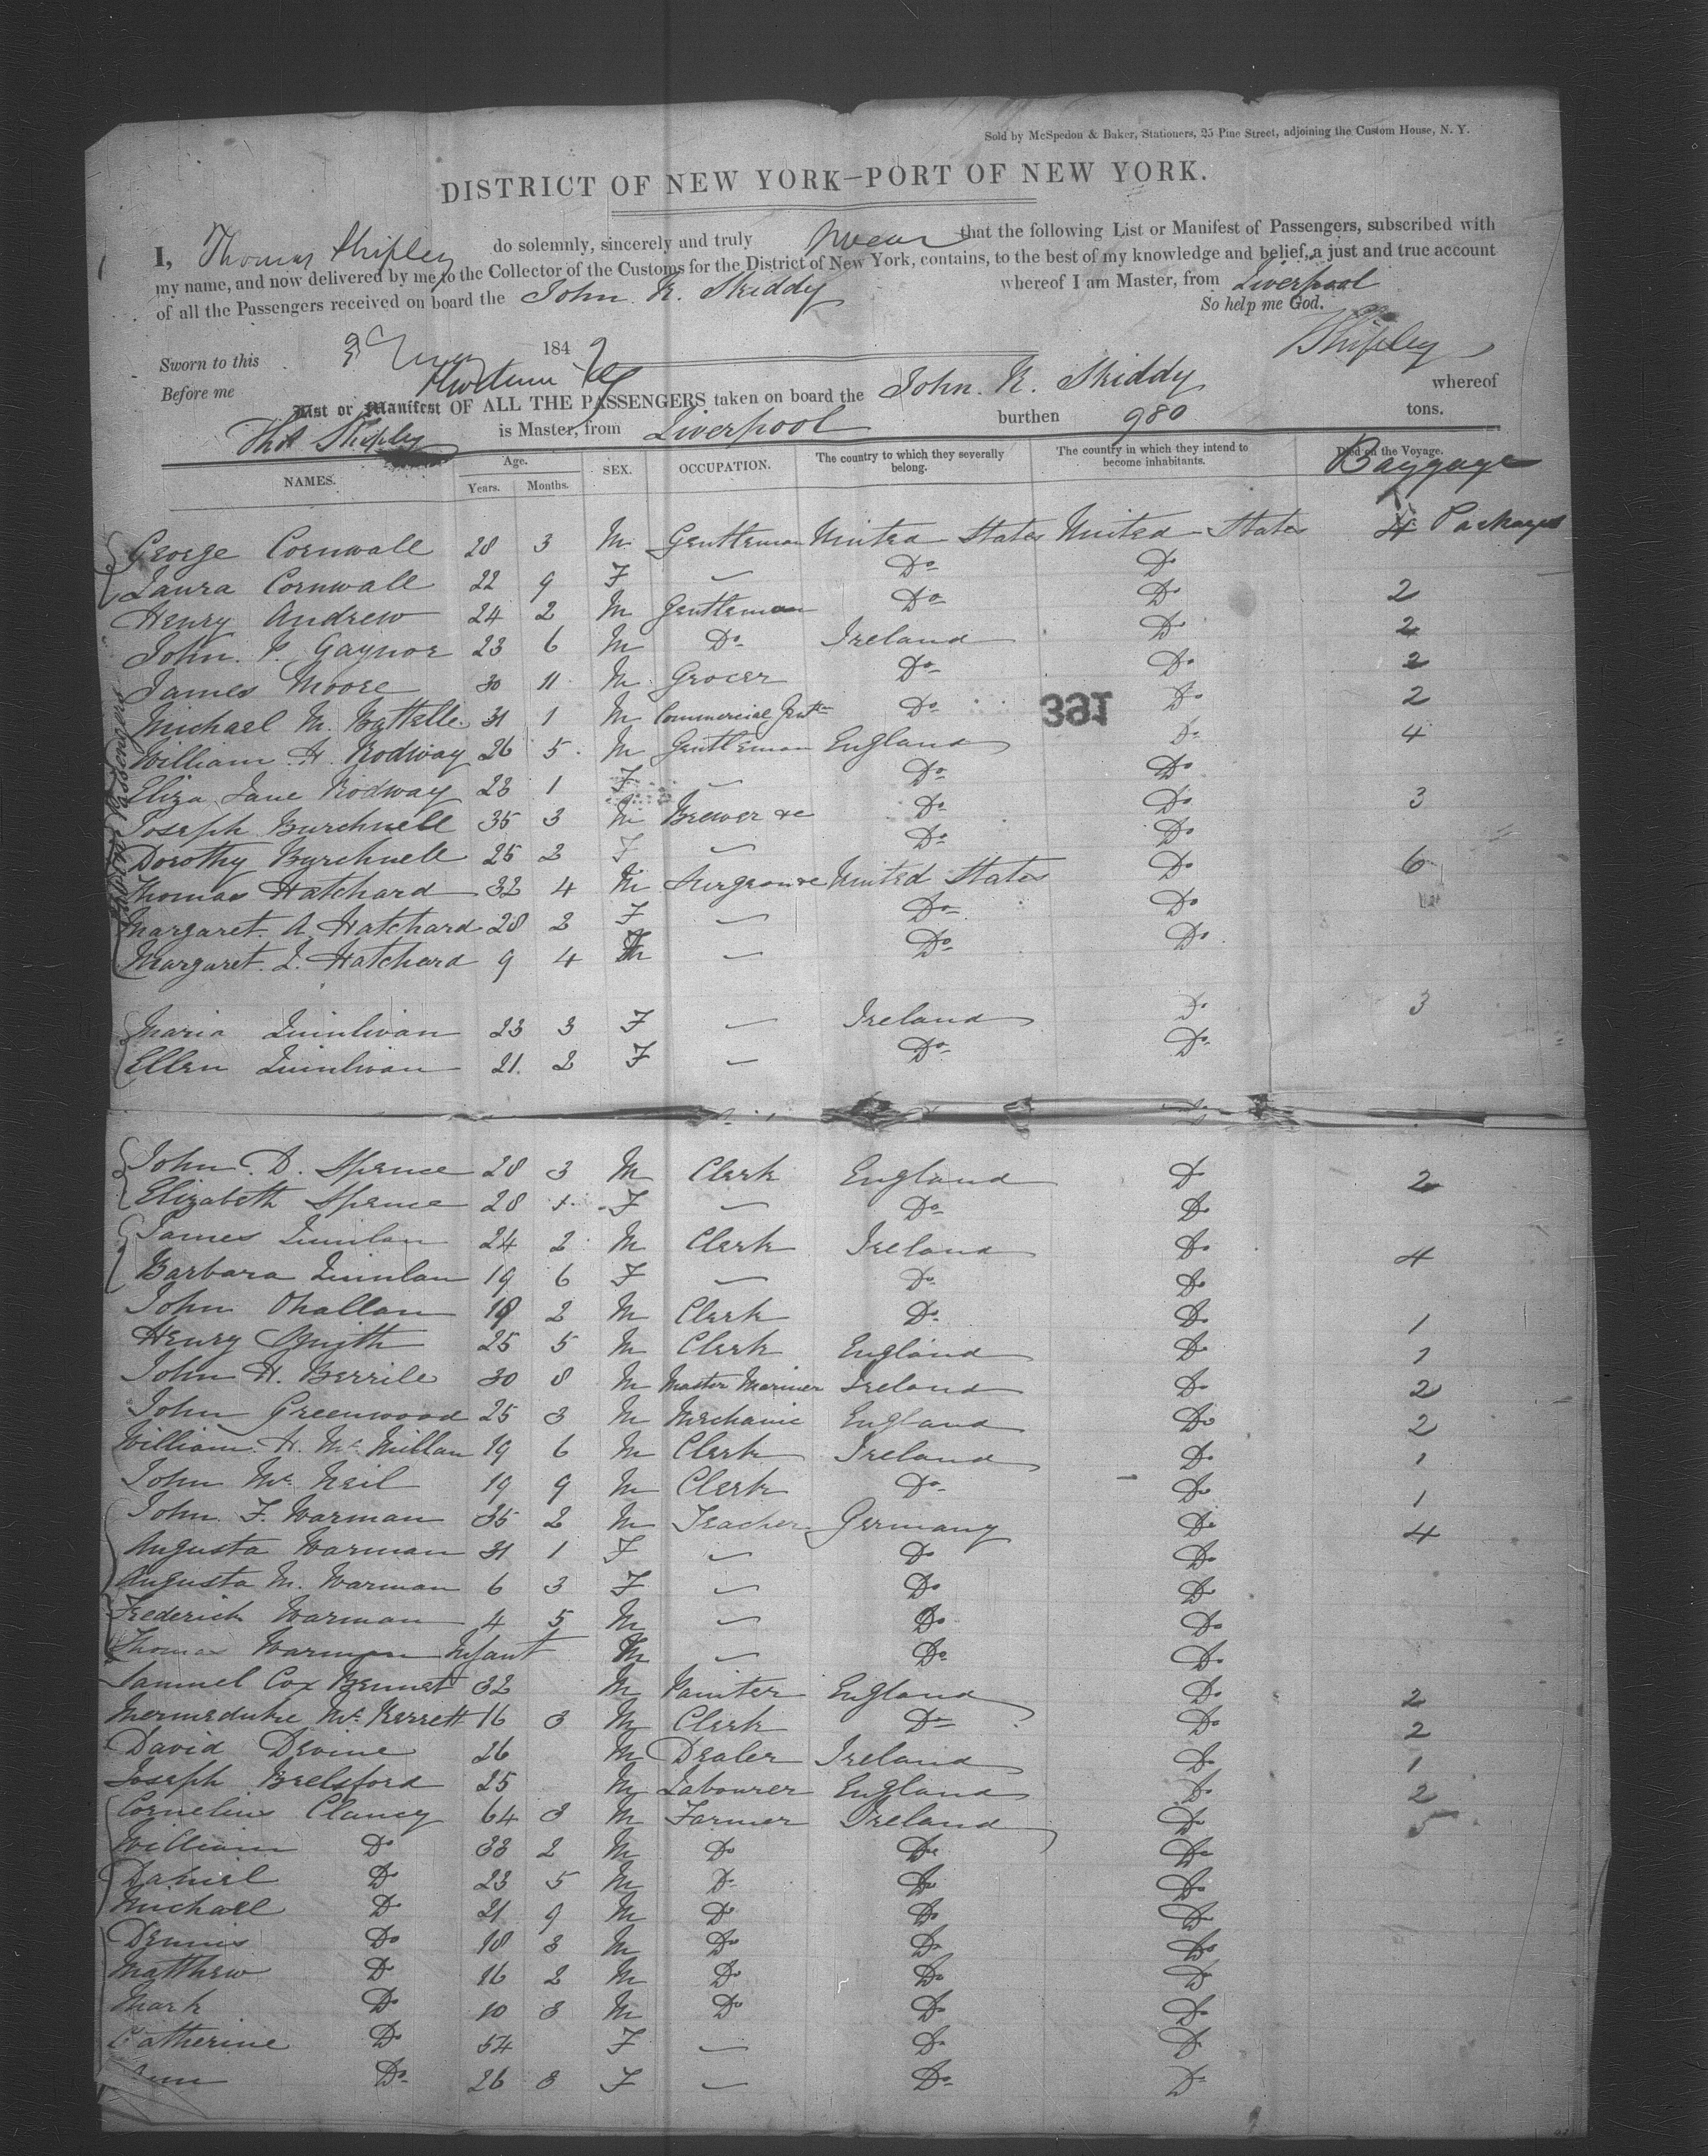 Sold by McSpedon & Baker, Stationers, 25 Pine Street, adjoining the Custom House, N. Y.
DISTRICT OF NEW YORK—PORT OF NEW YORK.
I, Thomas Shipley do solemnly, sincerely and truly swear that the following List or Manifest of Passengers, subscribed with
my name, and now delivered by me to the Collector of the Customs for the District of New York, contains, to the best of my knowledge and belief, a just and true account
of all the Passengers received on board the John R. Skiddy whereof I am Master, from Liverpool
So help me God.
Sworn to this 184
TShipley
Before me
List or Manifest OF ALL THE PASSENGERS taken on board the John. R. Skiddy whereof
Thos Shipley is Master, from Liverpool burthen 980 tons.
NAMES. Age. Years. Months. SEX. OCCUPATION. The country to which they severally belong. The country in which they intend to become inhabitants. Died on the Voyage. Baggage
George Cornwall 28 3 M Gentleman United States United States 4 Packages
Laura Cornwall 22 9 F — Do Do
Henry Andrew 24 2 M Gentleman Do Do 2
John. P. Gaynor 23 6 M Do Ireland Do 2
James Moore 30 11 M Grocer Do Do 2
Michael M. 31 1 M Commercial Do Do 2
391
William. H. Rodway 26 5 M Gentleman England Do 4
Eliza Jane Rodway 23 1 F — Do Do
Joseph Burchnell 35 3 M Brewer &c Do Do 3
Dorothy Burchnell 25 2 F — Do Do
Thomas Hatchard 32 4 M Surgeon &c United States Do 6
Margaret. A. Hatchard 28 2 F — Do Do
Margaret. L. Hatchard 9 4 F — Do Do
Cabin Passengers
Maria Quinlivan 23 3 F — Ireland Do 3
Ellen Quinlivan 21 2 F — Do Do
John. D. Spence 28 3 M Clerk England Do 2
Elizabeth Spence 28 1 F — Do Do
James Quinlan 24 2 M Clerk Ireland Do 4
Barbara Quinlan 19 6 F — Do Do
John Ohallan 2 M Clerk Do Do 1
Henry Smith 25 5 M Clerk England Do 1
John H. Berrile 30 8 M Master Mariner Ireland Do 2
John Greenwood 25 3 M Mechanic England Do 2
William. H. Mc Millan 19 6 M Clerk Ireland Do 1
John Mc Neil 19 9 M Clerk Do Do 1
John. F. Warman 35 2 M Teacher Germany Do 4
Augusta Warman 31 1 F — Do Do
Augusta M. Warman 6 3 F — Do Do
Frederick Warman 4 5 M — Do Do
Thomas Warman Infant M — Do Do
Samuel Cox Bennet 32 M Painter England Do 2
Mermeduke Mc Kerrett 16 3 M Clerk Do Do 2
David Devine 26 M Dealer Ireland Do 1
Joseph Brelsford 25 M Labourer England Do 2
Cornelius Clancy 64 3 M Farmer Ireland Do 5
William Do 33 2 M Do Do Do
Daniel Do 23 5 M Do Do Do
Michael Do 21 9 M Do Do Do
Dennis Do 18 3 M Do Do Do
Matthew Do 16 2 M Do Do Do
Mark Do 10 8 M Do Do Do
Catherine Do 54 F — Do Do
Ann Do 26 8 F — Do Do